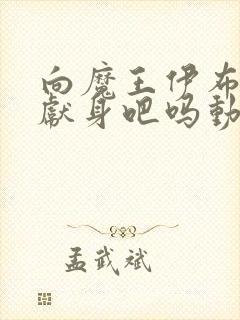 向魔王伊布
献身吧吗動
孟武斌